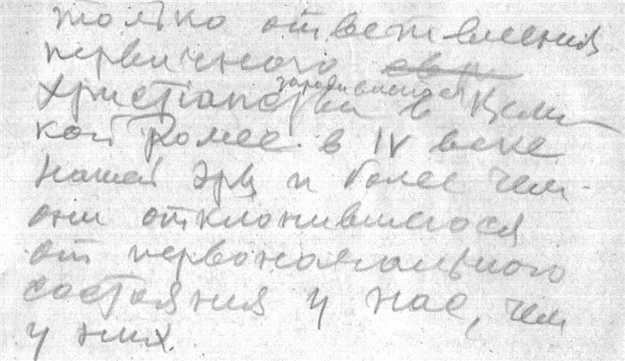 только ответвления
первичного
христіанства зародившагося в Вели-
кой Ромее в IV веке
нашей эры и более чем
они отклонившегося
от первоначального
состояния у нас, чем
у них.